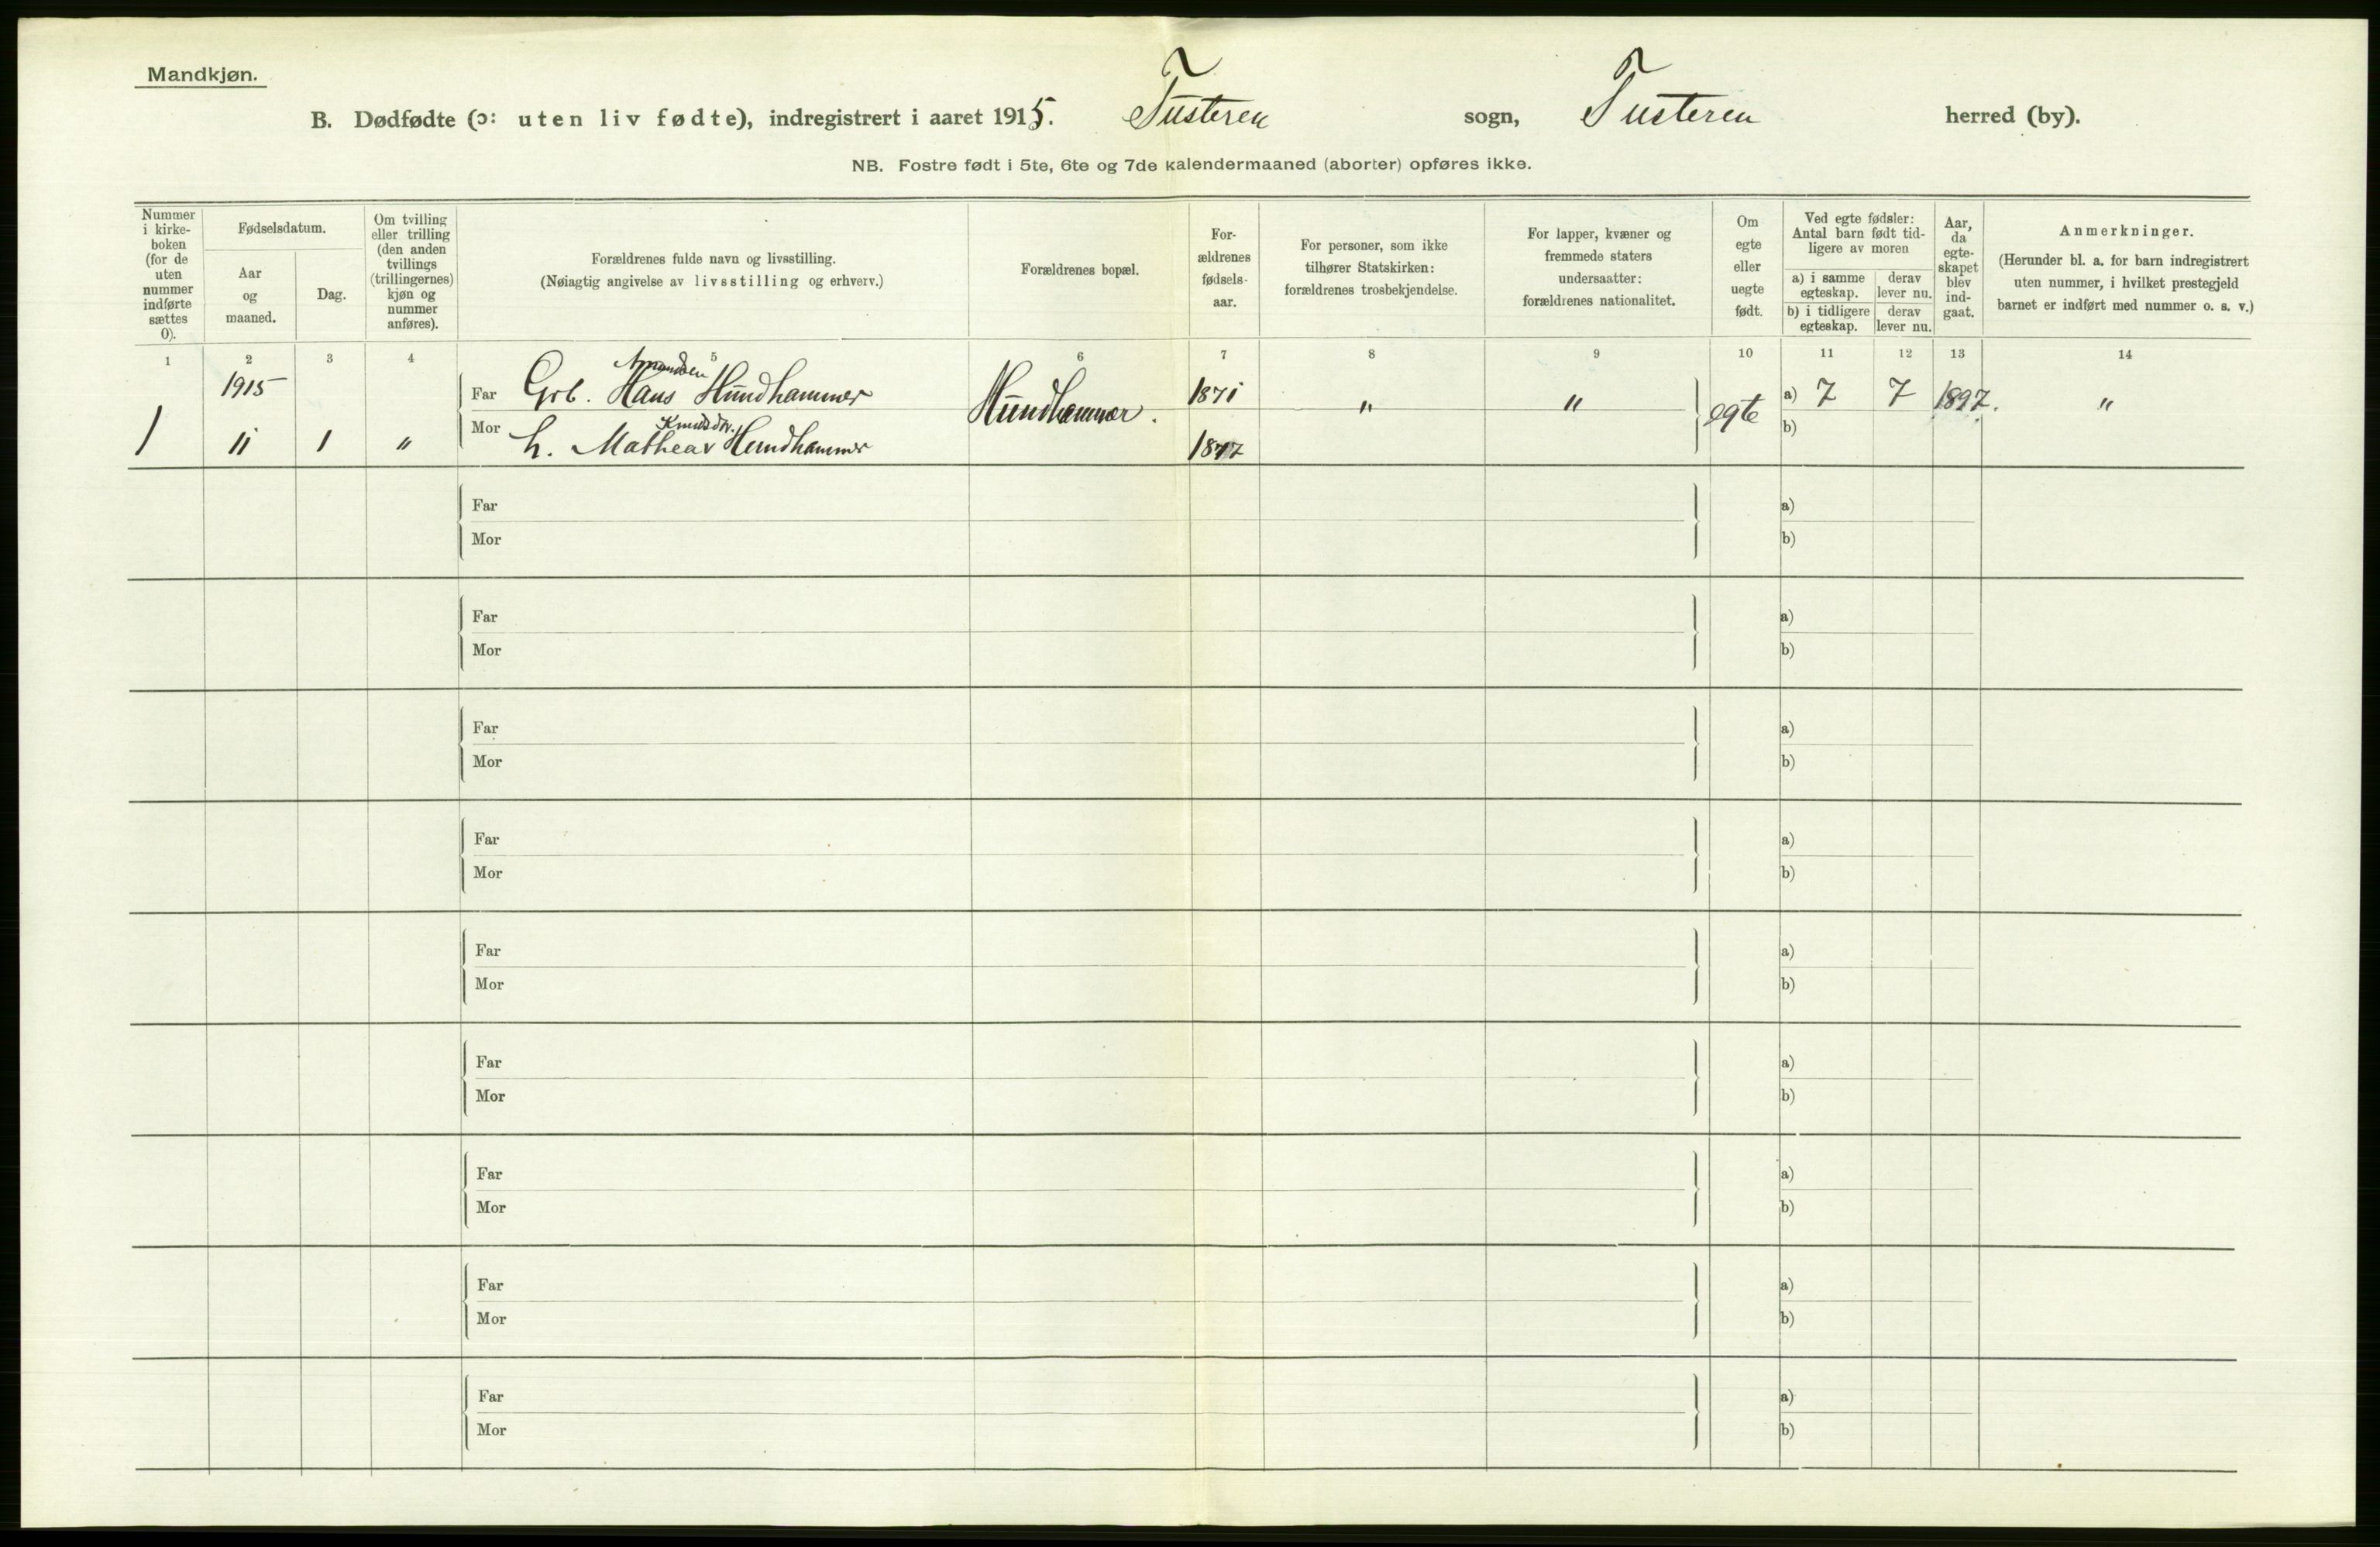 Mandkjøn.
B. Dødfødte (ɔ: uten liv fødte), indregistrert i aaret 1915. Tusteren sogn, Tusteren herred (by).
NB. Fostre født i 5te, 6te og 7de kalendermaaned (aborter) opføres ikke.
Nummer
i kirke-
boken
(for de
uten
nummer
indførte
sættes
0).
Fødselsdatum.
Aar
og
maaned.
Dag.
Om tvilling
eller trilling
(den anden
tvillings
(trillingernes)
kjøn og
nummer
anføres).
Forældrenes fulde navn og livsstilling.
(Nøiagtig angivelse av livsstilling og erhverv.)
Forældrenes bopæl.
For-
ældrenes
fødsels-
aar.
For personer, som ikke
tilhører Statskirken:
forældrenes trosbekjendelse.
For lapper, kvæner og
fremmede staters
undersaatter:
forældrenes nationalitet.
Om
egte
eller
uegte
født.
Ved egte fødsler:
Antal barn født tid-
ligere av moren
a) i samme
egteskap.
derav
lever nu.
b) i tidligere
egteskap.
derav
lever nu.
Aar,
da
egte-
skapet
blev
ind-
gaat.
Anmerkninger.
(Herunder bl. a. for barn indregistrert
uten nummer, i hvilket prestegjeld
barnet er indført med nummer o. s. v.)
1 2 3 4 5 6 7 8 9 10 11 12 13 14
1915
Far Grb. Hans Hundhammer
Hundhammer.
1871
"
"
egte
a) 7 7 1897.
"
1 11 1 "
Mor Knudsdtr.
h. Mathea Hundhammer
b)
Far a)
Mor b)
Far a)
Mor b)
Far a)
Mor b)
Far a)
Mor b)
Far a)
Mor b)
Far a)
Mor b)
Far a)
Mor b)
Far a)
Mor b)
Far a)
Mor b)